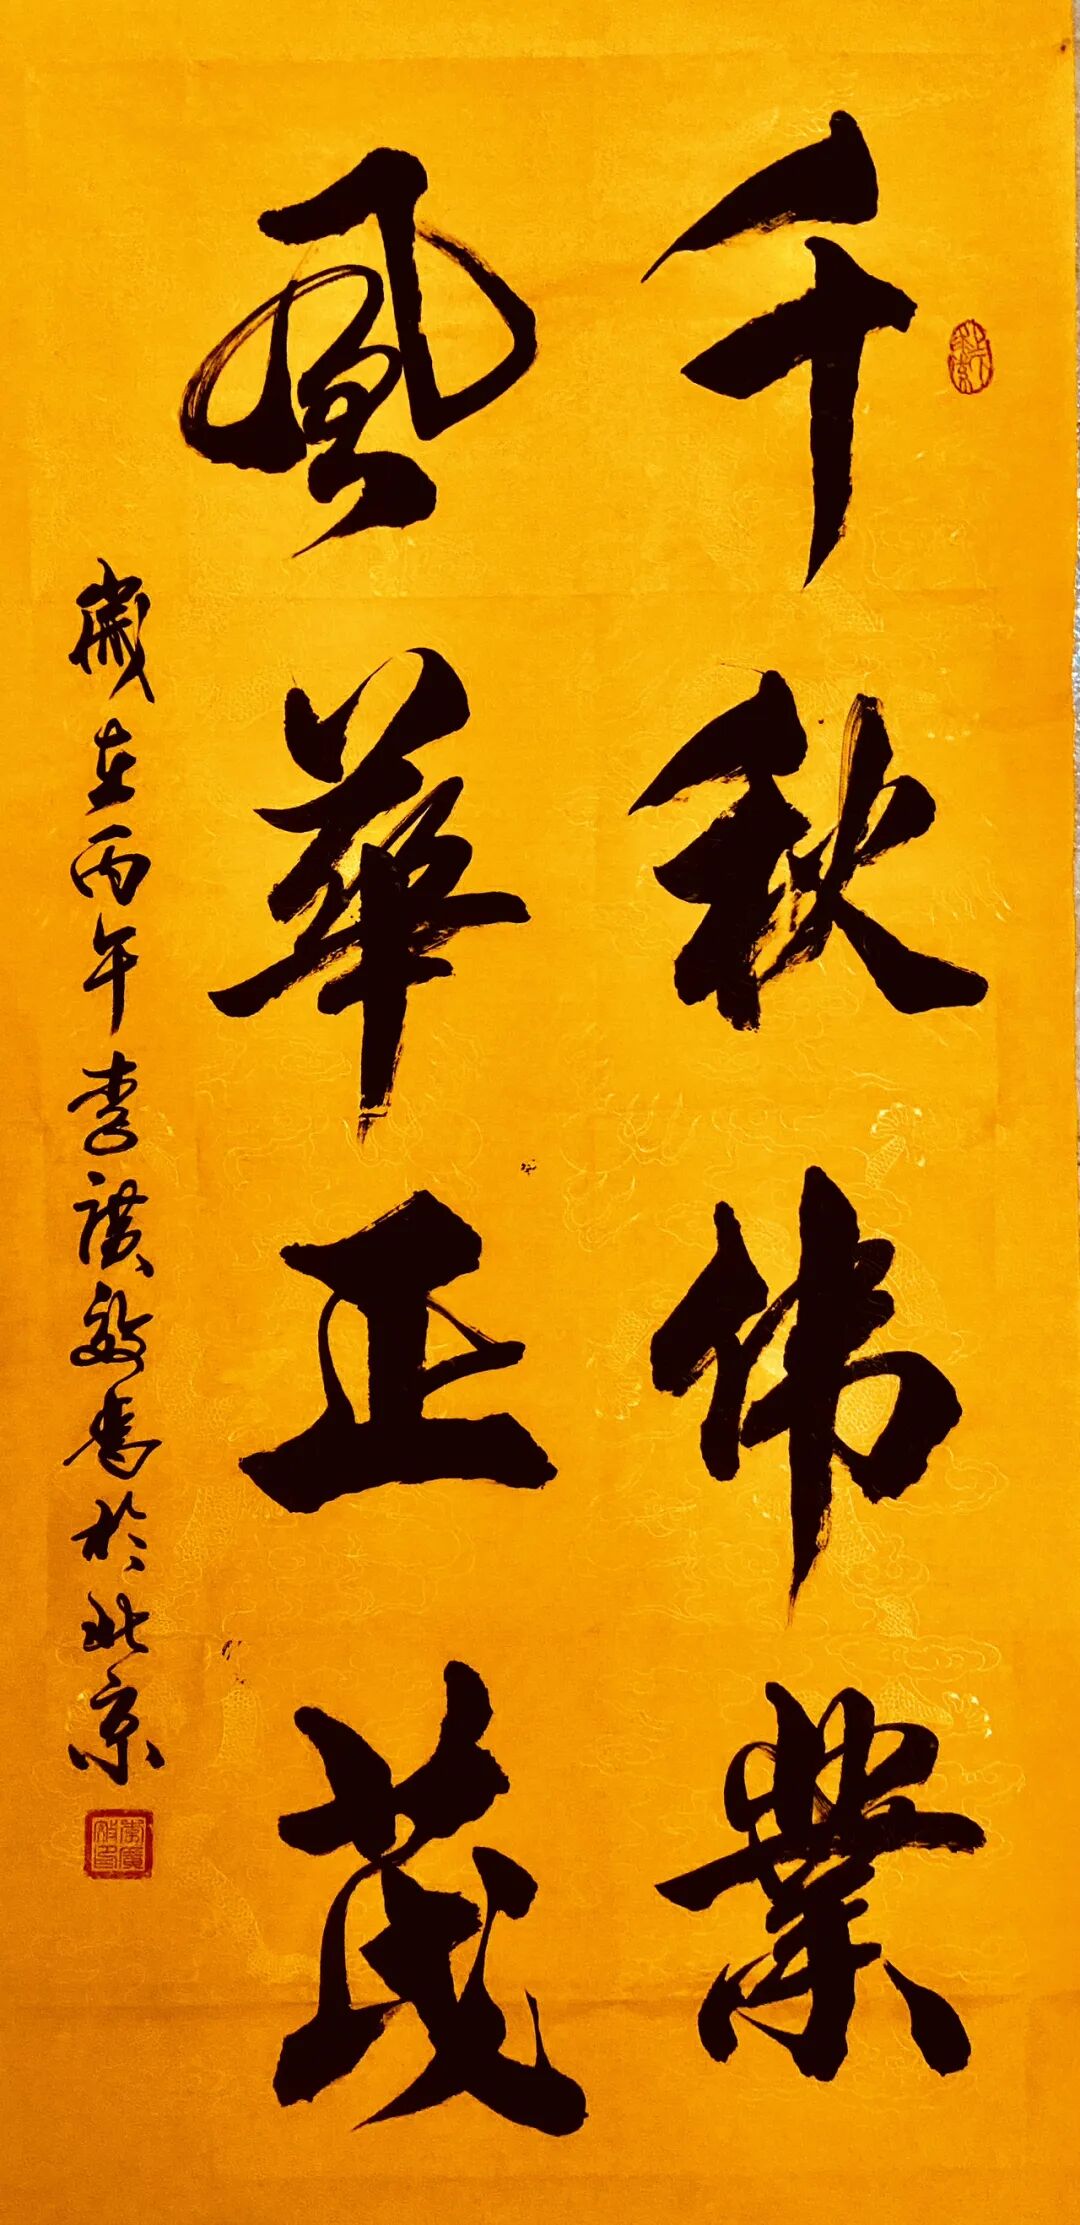 千秋伟業
風華正茂
歲在丙午李廣敏書於北京